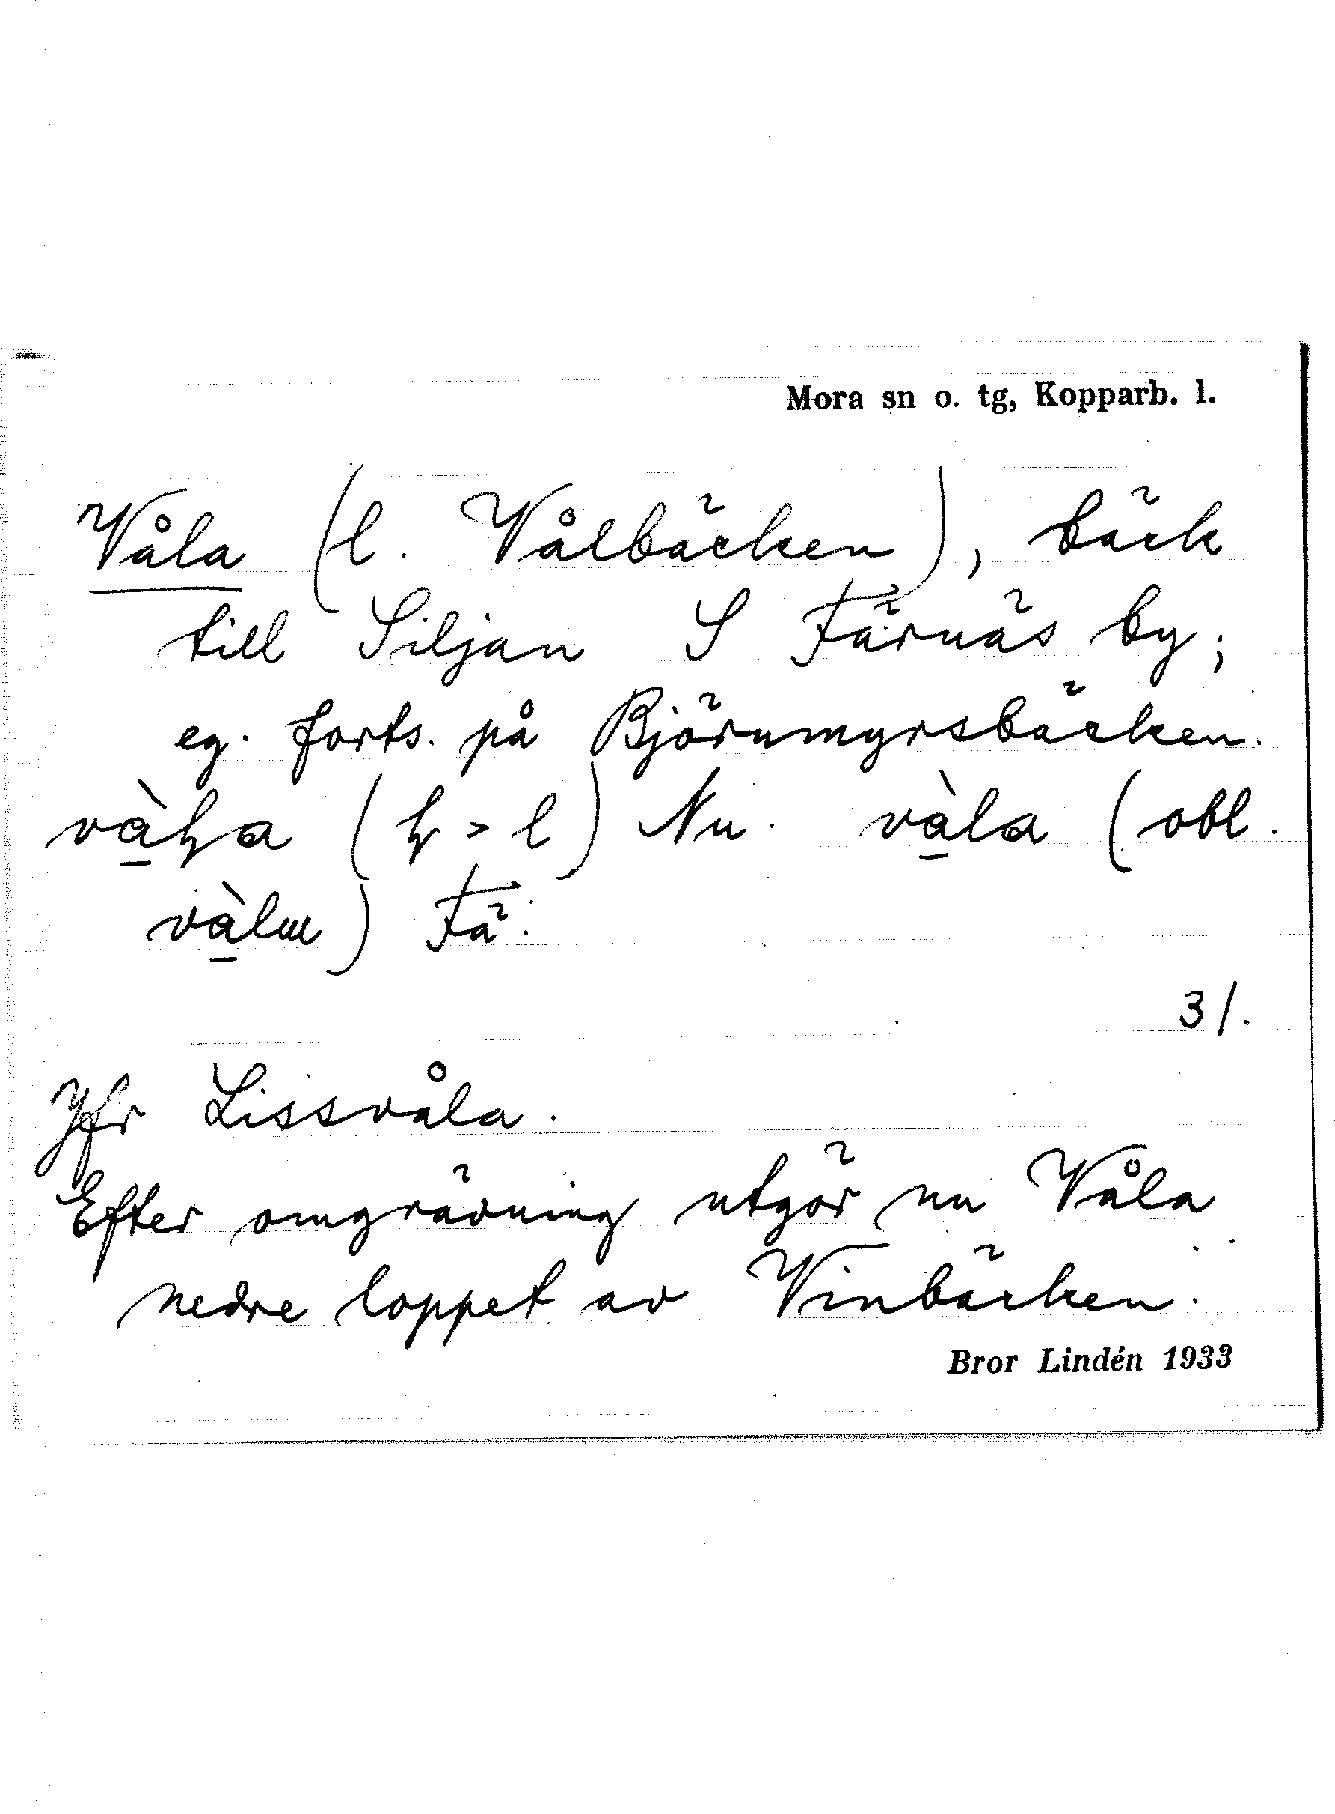 Mora sn o. tg, Kopparb. l.
Våla (l. Vålbäcken), bäck
till Siljan S Färnäs by;
eg. forts. på Björnmyrsbäcken.
(> l) Nu. và̱la (obl.
Fä.
31.
Jfr Lissvåla.
Efter omgrävning utgör nu Våla
nedre loppet av Vinbäcken.
Bror Lindén 1933